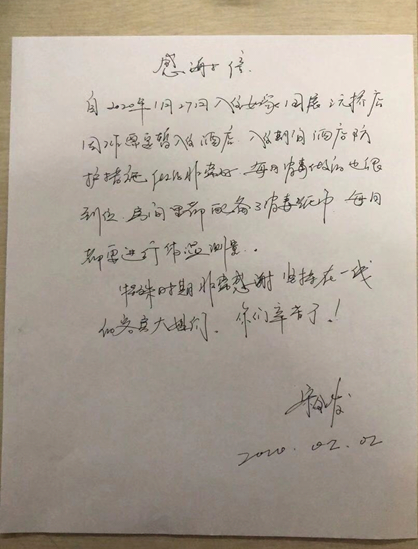 感谢信
自2020年1月27日入住如家国展三元桥店
因工作原因暂入住酒店，入住期间酒店防
护措施做的非常好，每日消毒做的也很
到位，房间里都配备了消毒纸巾，每日
都要进行体温测量。
特殊时期非常感谢坚持在一线
的客房大姐们，你们辛苦了！
2020.02.02